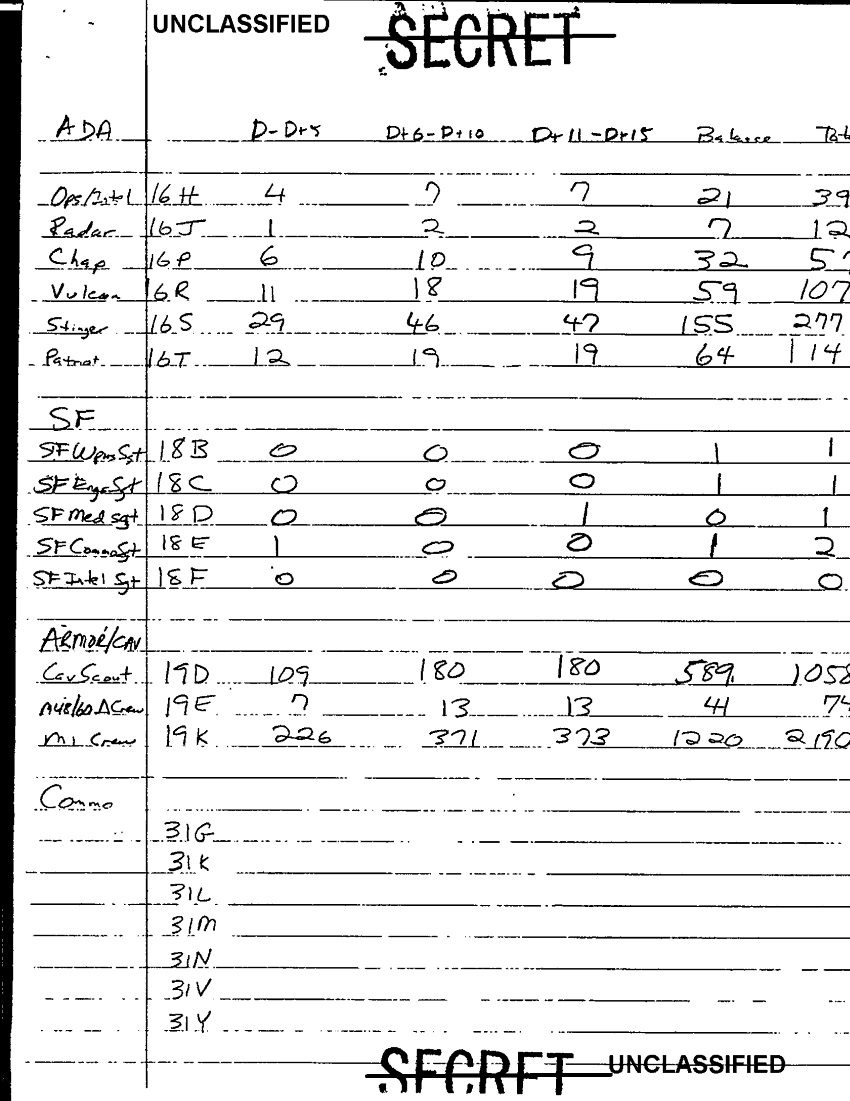 UNCLASSIFIED SECRET
ADA D-D+5 D+6-D+10 D+11-D+15 Balance Tot
Ops/Intel 16H 4 7 7 21 39
Radar 16J 1 2 2 7 12
Chap 16P 6 10 9 32 57
Vulcan 16R 11 18 19 59 107
Stinger 16S 29 46 47 155 277
Patriot 16T 12 19 19 64 114
SF
SF Wpns Sgt 18B 0 0 0 1 1
SF Engr Sgt 18C 0 0 0 1 1
SF Med sgt 18D 0 0 1 0 1
SF Commo Sgt 18E 1 0 0 1 2
SF Intel Sgt 18F 0 0 0 0 0
ARMOR/CAV
Cav Scout 19D 109 180 180 589 1058
M48/60A Crew 19E 7 13 13 41 74
M1 Crew 19K 226 371 373 1220 2190
Commo
31G
31K
31L
31M
31N
31V
31Y
SECRET UNCLASSIFIED